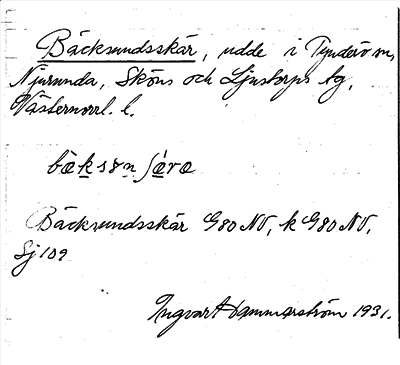 Bäcksundsskär, udde i Tynderö sn,
Njurunda, Sköns och Ljustorps tg,
Västernorrl. l.
bäksøn ʃæra
Bäcksundsskär G80 NV, k G80 NV,
Sj 109
Ingvar Hammarström 1931.